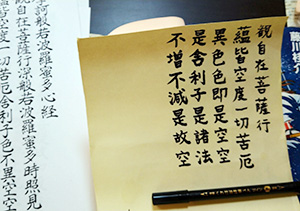 觀自在菩薩行
蘊皆空度一切苦厄
異色色即是空空
是舍利子是諸法
不增不減是故空
般若波羅蜜多心經
自在菩薩行深般若波羅蜜多時照見
空度一切苦厄舍利子色不異空空